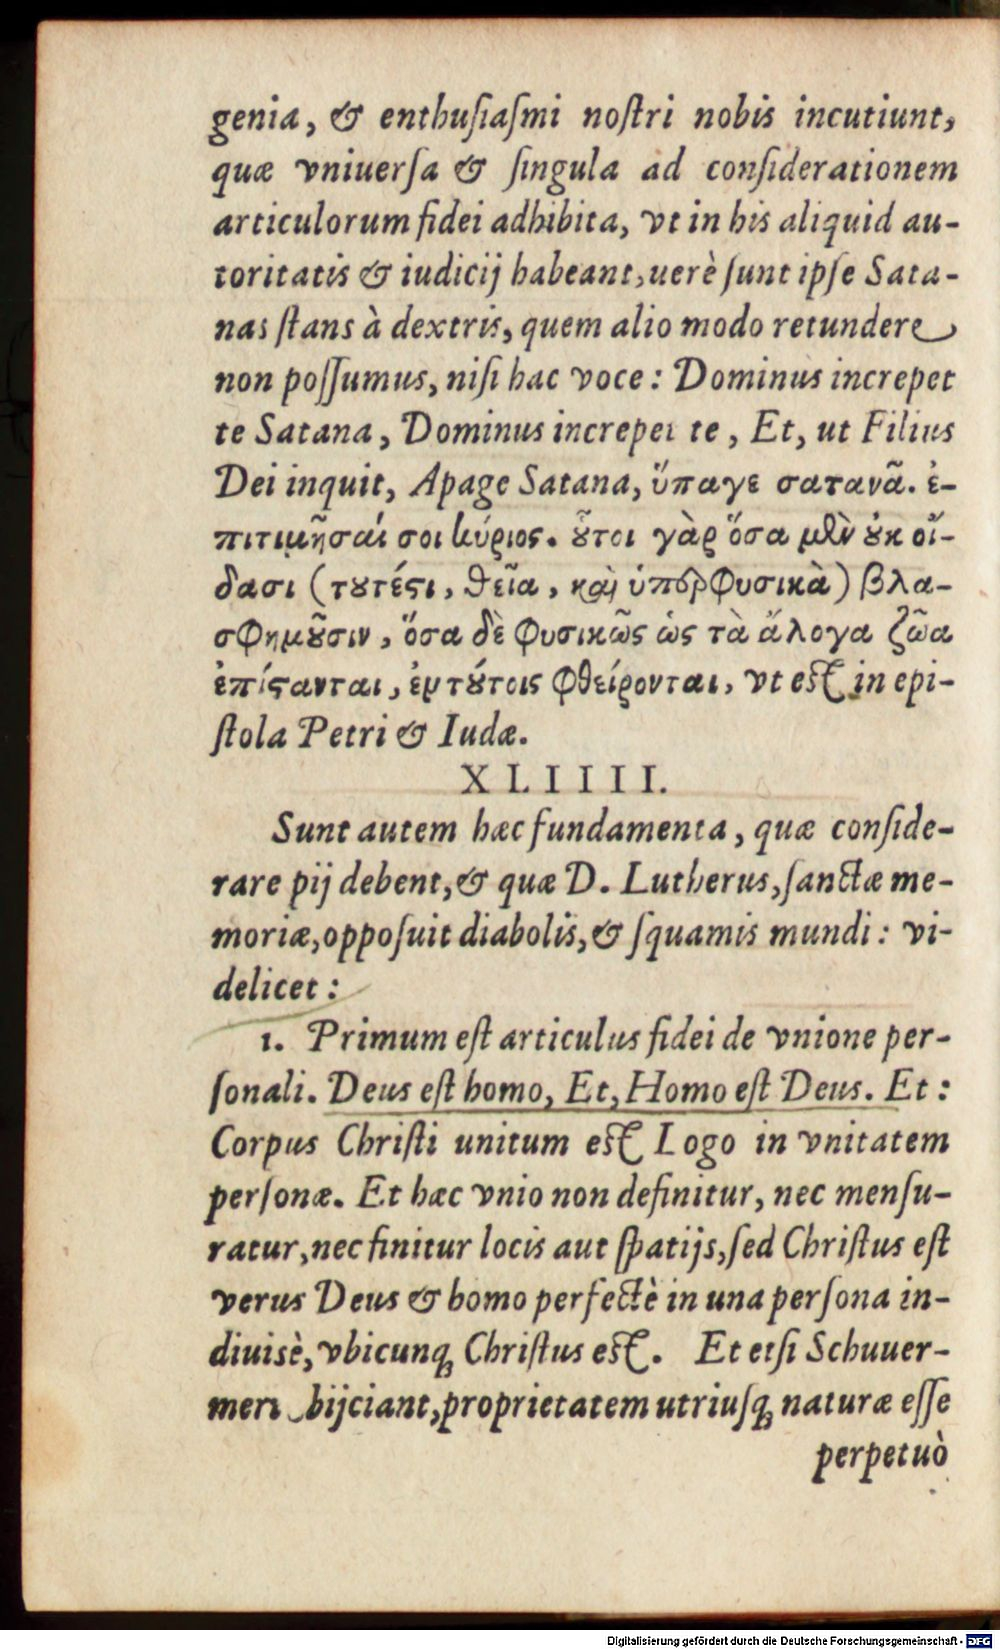 genia, & enthuſiaſmi noſtri nobis incutiunt,
quæ vniuerſa & ſingula ad conſiderationem
articulorum fidei adhibita, vt in his aliquid au-
toritatis & iudicij habeant, uerè ſunt ipſe Sata-
nas ſtans à dextris, quem alio modo retundere
non poſſumus, niſi hac voce: Dominus increpet
te Satana, Dominus increpet te, Et, ut Filius
Dei inquit, Apage Satana, ὕπαγε σατανᾶ. ἐ-
πιτιμῆσαί σοι κύριος. ȣ̔͂τοι γὰρ ὅσα μὲν ȣ̓κ οἴ-
δασι (τȣτέϛι, θεῖα, καὶ ὑπερφυσικὰ) βλα-
σφημȣ͂σιν, ὅσα δὲ φυσικῶς ὡς τὰ ἄλογα ζῶα
ἐπίϛανται, ἐν τȣ́τοις φθείρονται, vt eſt in epi-
ſtola Petri & Iudæ.
XLIIII.
Sunt autem hæc fundamenta, quæ conſide-
rare pij debent, & quæ D. Lutherus, ſanctæ me-
moriæ, oppoſuit diabolis, & ſquamis mundi: vi-
delicet:
1. Primum eſt articulus fidei de vnione per-
ſonali. Deus eſt homo, Et, Homo eſt Deus. Et:
Corpus Chriſti unitum eſt Logo in vnitatem
perſonæ. Et hæc vnio non definitur, nec menſu-
ratur, nec finitur locis aut ſpatijs, ſed Chriſtus eſt
verus Deus & homo perfectè in una perſona in-
diuisè, vbicunq; Chriſtus eſt. Et etſi Schuuer-
meri obijciant, proprietatem utriuſq; naturæ eſſe
perpetuò
Digitalisierung gefördert durch die Deutsche Forschungsgemeinschaft - DFG